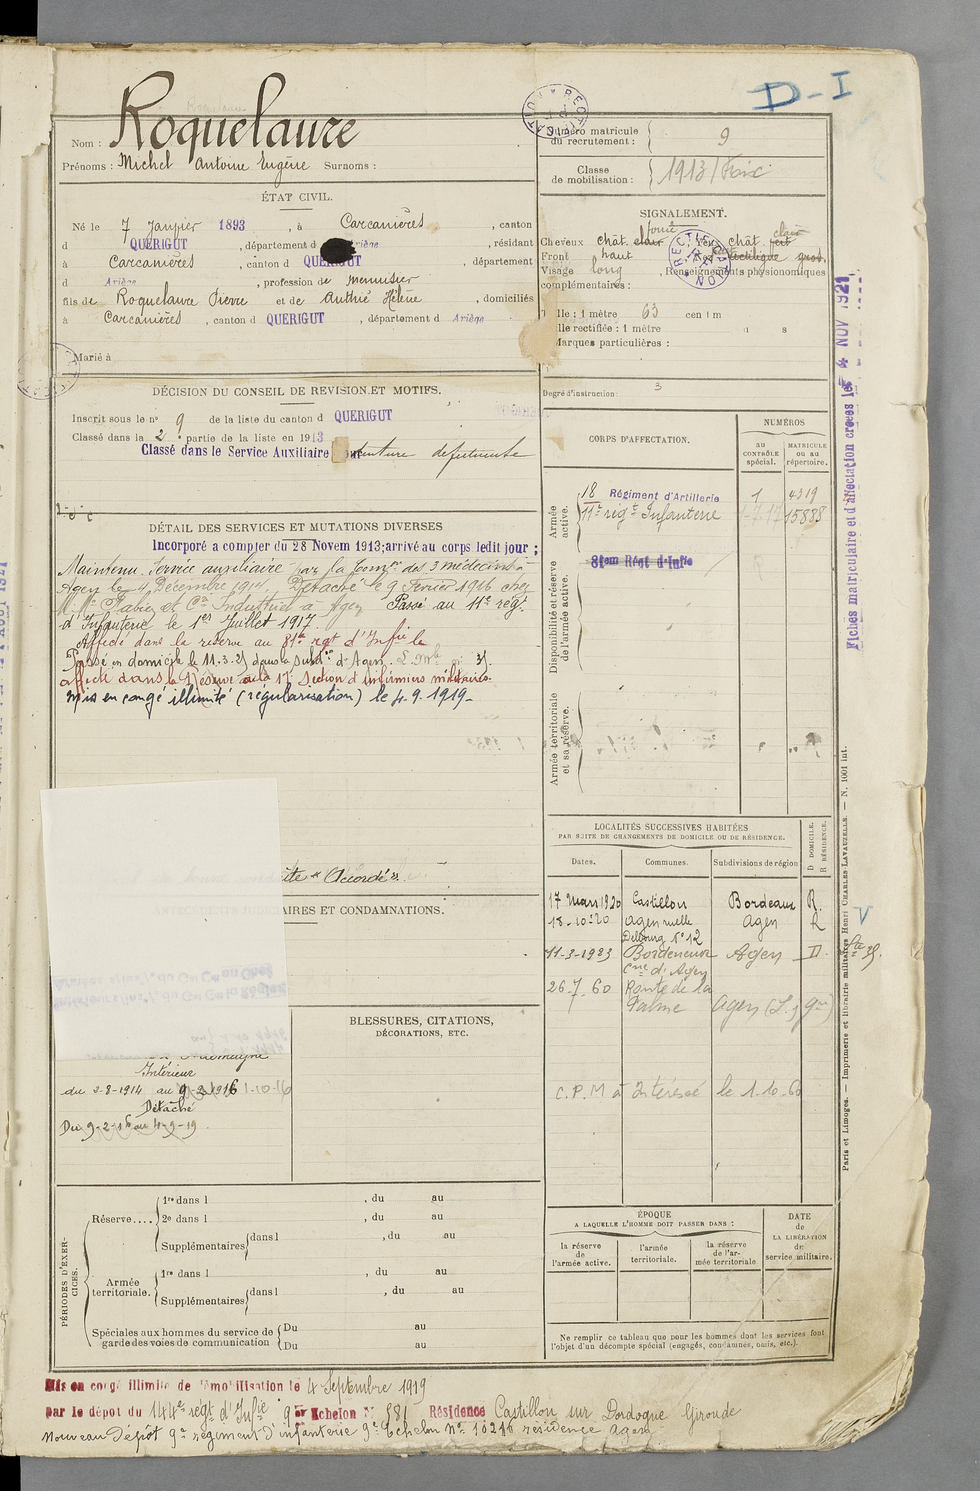 D-I
Nom : Roquelaure
Prénoms : Michel Antoine Eugène Surnoms :
Numéro matricule du recrutement : 9
Classe de mobilisation : 1913 / Foix
ÉTAT CIVIL.
Né le 7 Janvier 1893, à Carcanières, canton
d QUERIGUT, département d Ariège, résidant
à Carcanières, canton d QUERIGUT, département
d Ariège, profession de menuisier
fils de Roquelaure Pierre et de Authié Hélène, domiciliés
à Carcanières, canton d QUERIGUT, département d Ariège
Marié à
SIGNALEMENT.
Cheveux chât. clair foncé Yeux chât. clair
Front haut Nez rectiligne
Visage long, Renseignements physionomiques
complémentaires :
Taille : 1 mètre 63 centim
Taille rectifiée : 1 mètre
Marques particulières :
Degré d'instruction : 3
DÉCISION DU CONSEIL DE REVISION ET MOTIFS.
Inscrit sous le n° 9 de la liste du canton d QUERIGUT
Classé dans la 2e partie de la liste en 1913
Classé dans le Service Auxiliaire denture défectueuse
DÉTAIL DES SERVICES ET MUTATIONS DIVERSES
Incorporé a compter du 28 Novem 1913; arrivé au corps ledit jour ;
Maintenu Service auxiliaire par la Comon des 3 médecins
Agen le 4 Décembre 1914 Détaché le 9 Février 1916 chez
Passé au 11e regt
d'Infanterie le 1er Juillet 1917.
Affecté dans la réserve au 81e regt d'Infie le
Passé en domicile le 11.3.23 dans la subdon d'Agen.
affecté dans la Réserve à la 17e Section d'infirmiers militaires.
mis en congé illimité (régularisation) le 4-9-1919-
ite "Accordé".
AIRES ET CONDAMNATIONS.
CORPS D'AFFECTATION.
NUMÉROS
au CONTRÔLE spécial.
MATRICULE ou au répertoire.
Armée active.
18 Régiment d'Artillerie 1 4319
11e régt Infanterie 15888
Disponibilité et réserve de l'armée active.
81em Régt d'Infie
Armée territoriale et sa réserve.
Fiches matriculaire et d'affectation créées le 4 NOV 1921
LOCALITÉS SUCCESSIVES HABITÉES
PAR SUITE DE CHANGEMENTS DE DOMICILE OU DE RÉSIDENCE.
Dates. Communes. Subdivisions de région D DOMICILE. R RÉSIDENCE.
17 Mars 1920 Castillon Bordeaux R.
18-10-20 Agen ruelle Agen R
Delbourg N° 12
11-3-1923 Bordeneuve Agen D.
Cne d'Agen
26.7.60 Route de la
Palme Agen (L. & Gne)
C.P.M à Intéressé le 1.10.60
BLESSURES, CITATIONS,
DÉCORATIONS, ETC.
Intérieur
du 2-8-1914 au 9-2-1916 1-10-16
Détaché
Du 9-2-16 au 4-9-19
PÉRIODES D'EXERCICES.
Réserve.... 1re dans l , du au
2e dans l , du au
Supplémentaires dans l , du au
Armée territoriale. 1re dans l , du au
Supplémentaires dans l , du au
Spéciales aux hommes du service de garde des voies de communication Du au
Du au
ÉPOQUE
A LAQUELLE L'HOMME DOIT PASSER DANS :
la réserve de l'armée active. l'armée territoriale. la réserve de l'armée territoriale
DATE DE LA LIBÉRATION du service militaire.
Ne remplir ce tableau que pour les hommes dont les services font
l'objet d'un décompte spécial (engagés, condamnés, omis, etc.).
Paris et Limoges. — Imprimerie et librairie militaires Henri CHARLES-LAVAUZELLE. — N. 1001 int.
Mis en congé illimité de démobilisation le 4 Septembre 1919
par le dépot du 144e régt d'Infie 9e Echelon N° 881 Résidence Castillon sur Dordogne Gironde
Nouveau Dépôt 9e régiment d'infanterie 9e Echelon n° 10216 résidence Agen